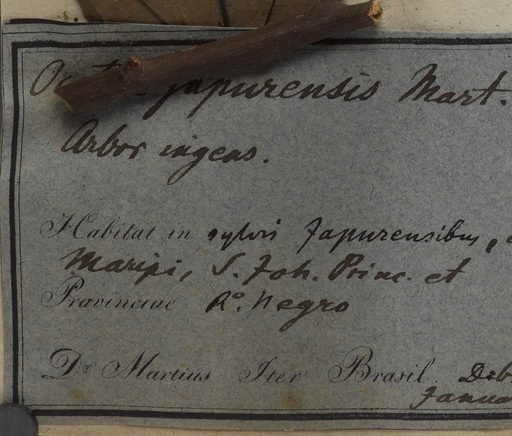 japurensis Mart.
Arbor ingens.
Habitat in sylvis Japurensibus,
Maripi, S. Joh. Princ. et
Provinciae R°. Negro
Dr. Martius Iter Brasil. Deb
Janua